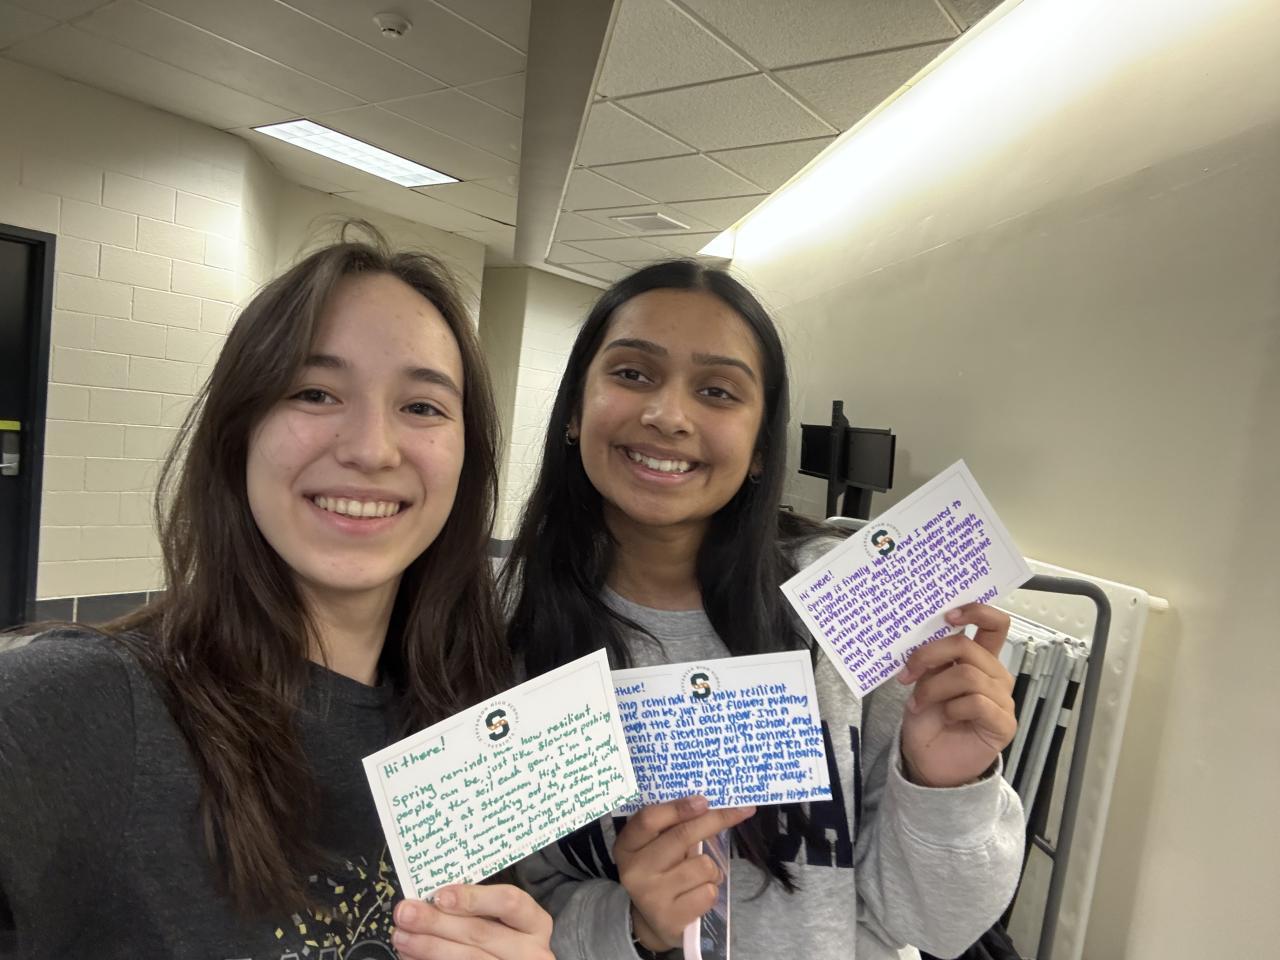 Hi there!
Spring reminds me how resilient
people can be, just like flowers pushing
through the soil each year. I'm a
student at Stevenson High School, and
our class is reaching out to connect with
community members we don't often see.
I hope this season brings you good health,
peaceful moments, and colorful blooms
to brighten your day!
there!
ring reminds me how resilient
can be, just like flowers pushing
the soil each year. I'm a
at Stevenson High School, and
class is reaching out to connect with
members we don't often see.
this season brings you good health,
moments, and perhaps some
blooms to brighten your days!
to brighter days ahead!
/Stevenson High School
Hi there!
Spring is finally here, and I wanted to
brighten your day! I'm a student at
Stevenson High School, and even though
we haven't met, I'm sending you warm
wishes as the flowers start to bloom. I
hope your days are filled with sunshine
and little moments that make you
smile. Have a wonderful spring!
12th grade/Stevenson School